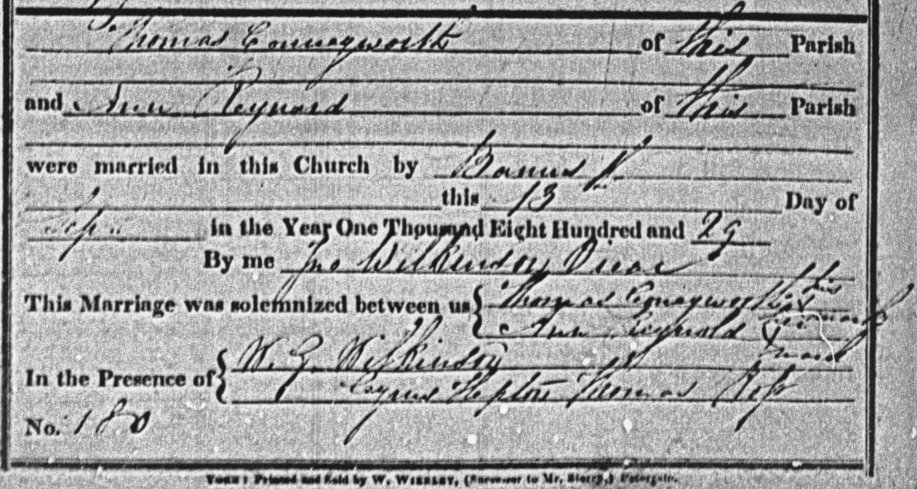 Thomas Connagworth of this Parish
and Ann Reynard of this Parish
were married in this Church by Banns
this 13 Day of
Sep. in the Year One Thousand Eight Hundred and 29
By me Jno Wilkinson Vicar
This Marriage was solemnized between us { Thomas Connagworth his
Ann Reynold
mark
In the Presence of { W. G. Wilkinson
Hepton Thomas
No. 180
YORK: Printed and Sold by W. (Successor to Mr. Storry,) Petergate.